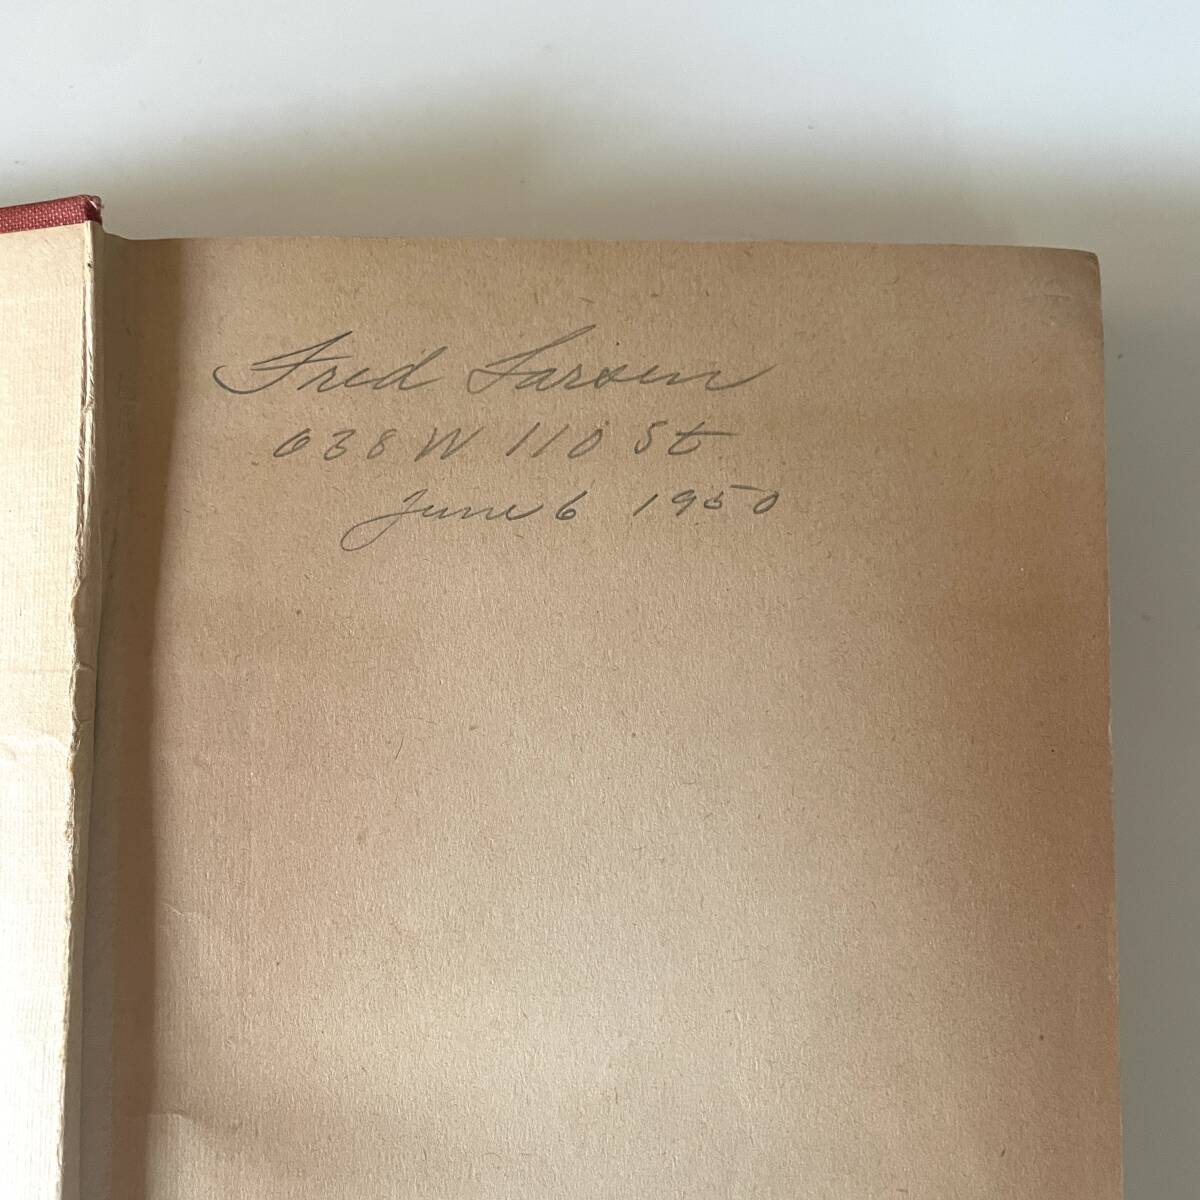 Fred Larsen
638 W 110 St
June 6 1950